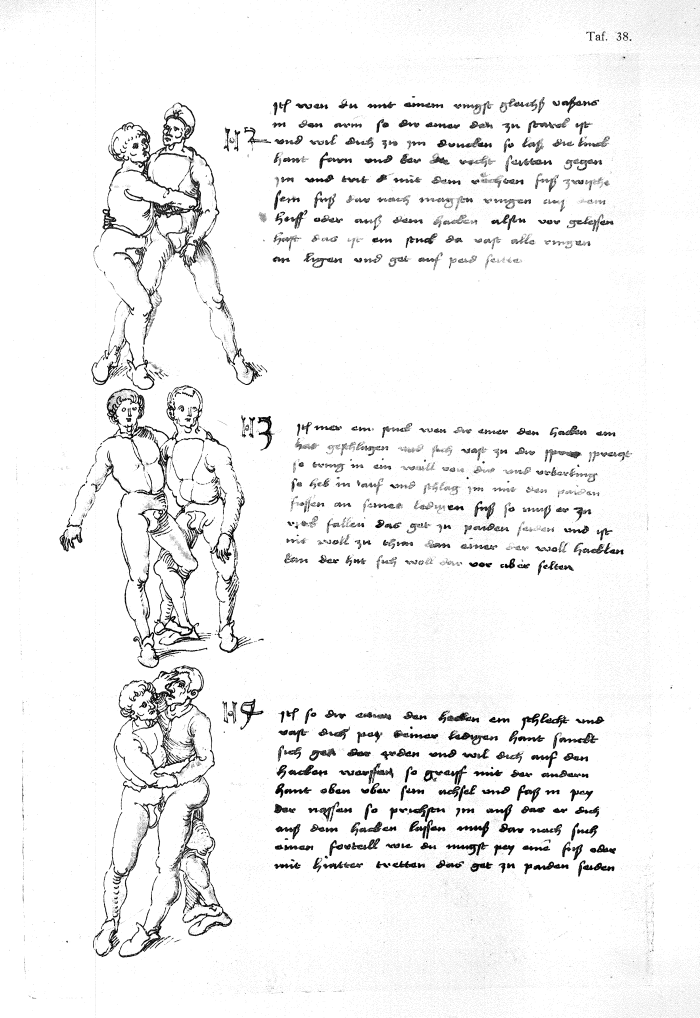 Taf. 38.
H 2
Itē wen du mit einem ringst gleichß vaßens
in den arm so dir einer den zu starck ist
und wil dich zu im drucken so laß die linck
hant farn und der recht seitten gegen
im und trit mit dem rechten fuß zwische
sein fuß dar nach magstu ringen auß dem
huff oder auß dem hacken alstu vor gelessen
hast das ist ein stuck da vast alle ringen
an ligen und get auf peid seitte
H 3
Itē mer ein stuck wen dir einer den hacken ein
hat geschlagen und sich vast zu dir spreigt
so tring in ein weill von dir und urberbing
so heb in auf und schlag im mit den paiden
fussen an seinen ledigen fuß so muß er zu
ruck fallen das get zu paiden seiden und ist
nit woll zu thun dan einer der woll hacklen
kan der hut sich woll dar vor aber selten
H 4
Itē so dir einer den hacken ein schlecht und
vast dich pey deiner ledigen hant sanckt
sich gen der erden und wil dich auf den
hacken werffen so greiff mit der andern
hant oben uber sein achsel und faß in pey
der nassen so prichstu im auß das er dich
auß dem hacken lassen muß dar nach such
einen forteill wie du mugst pey eine fuß oder
mit hinter tretten das get zu paiden seiden